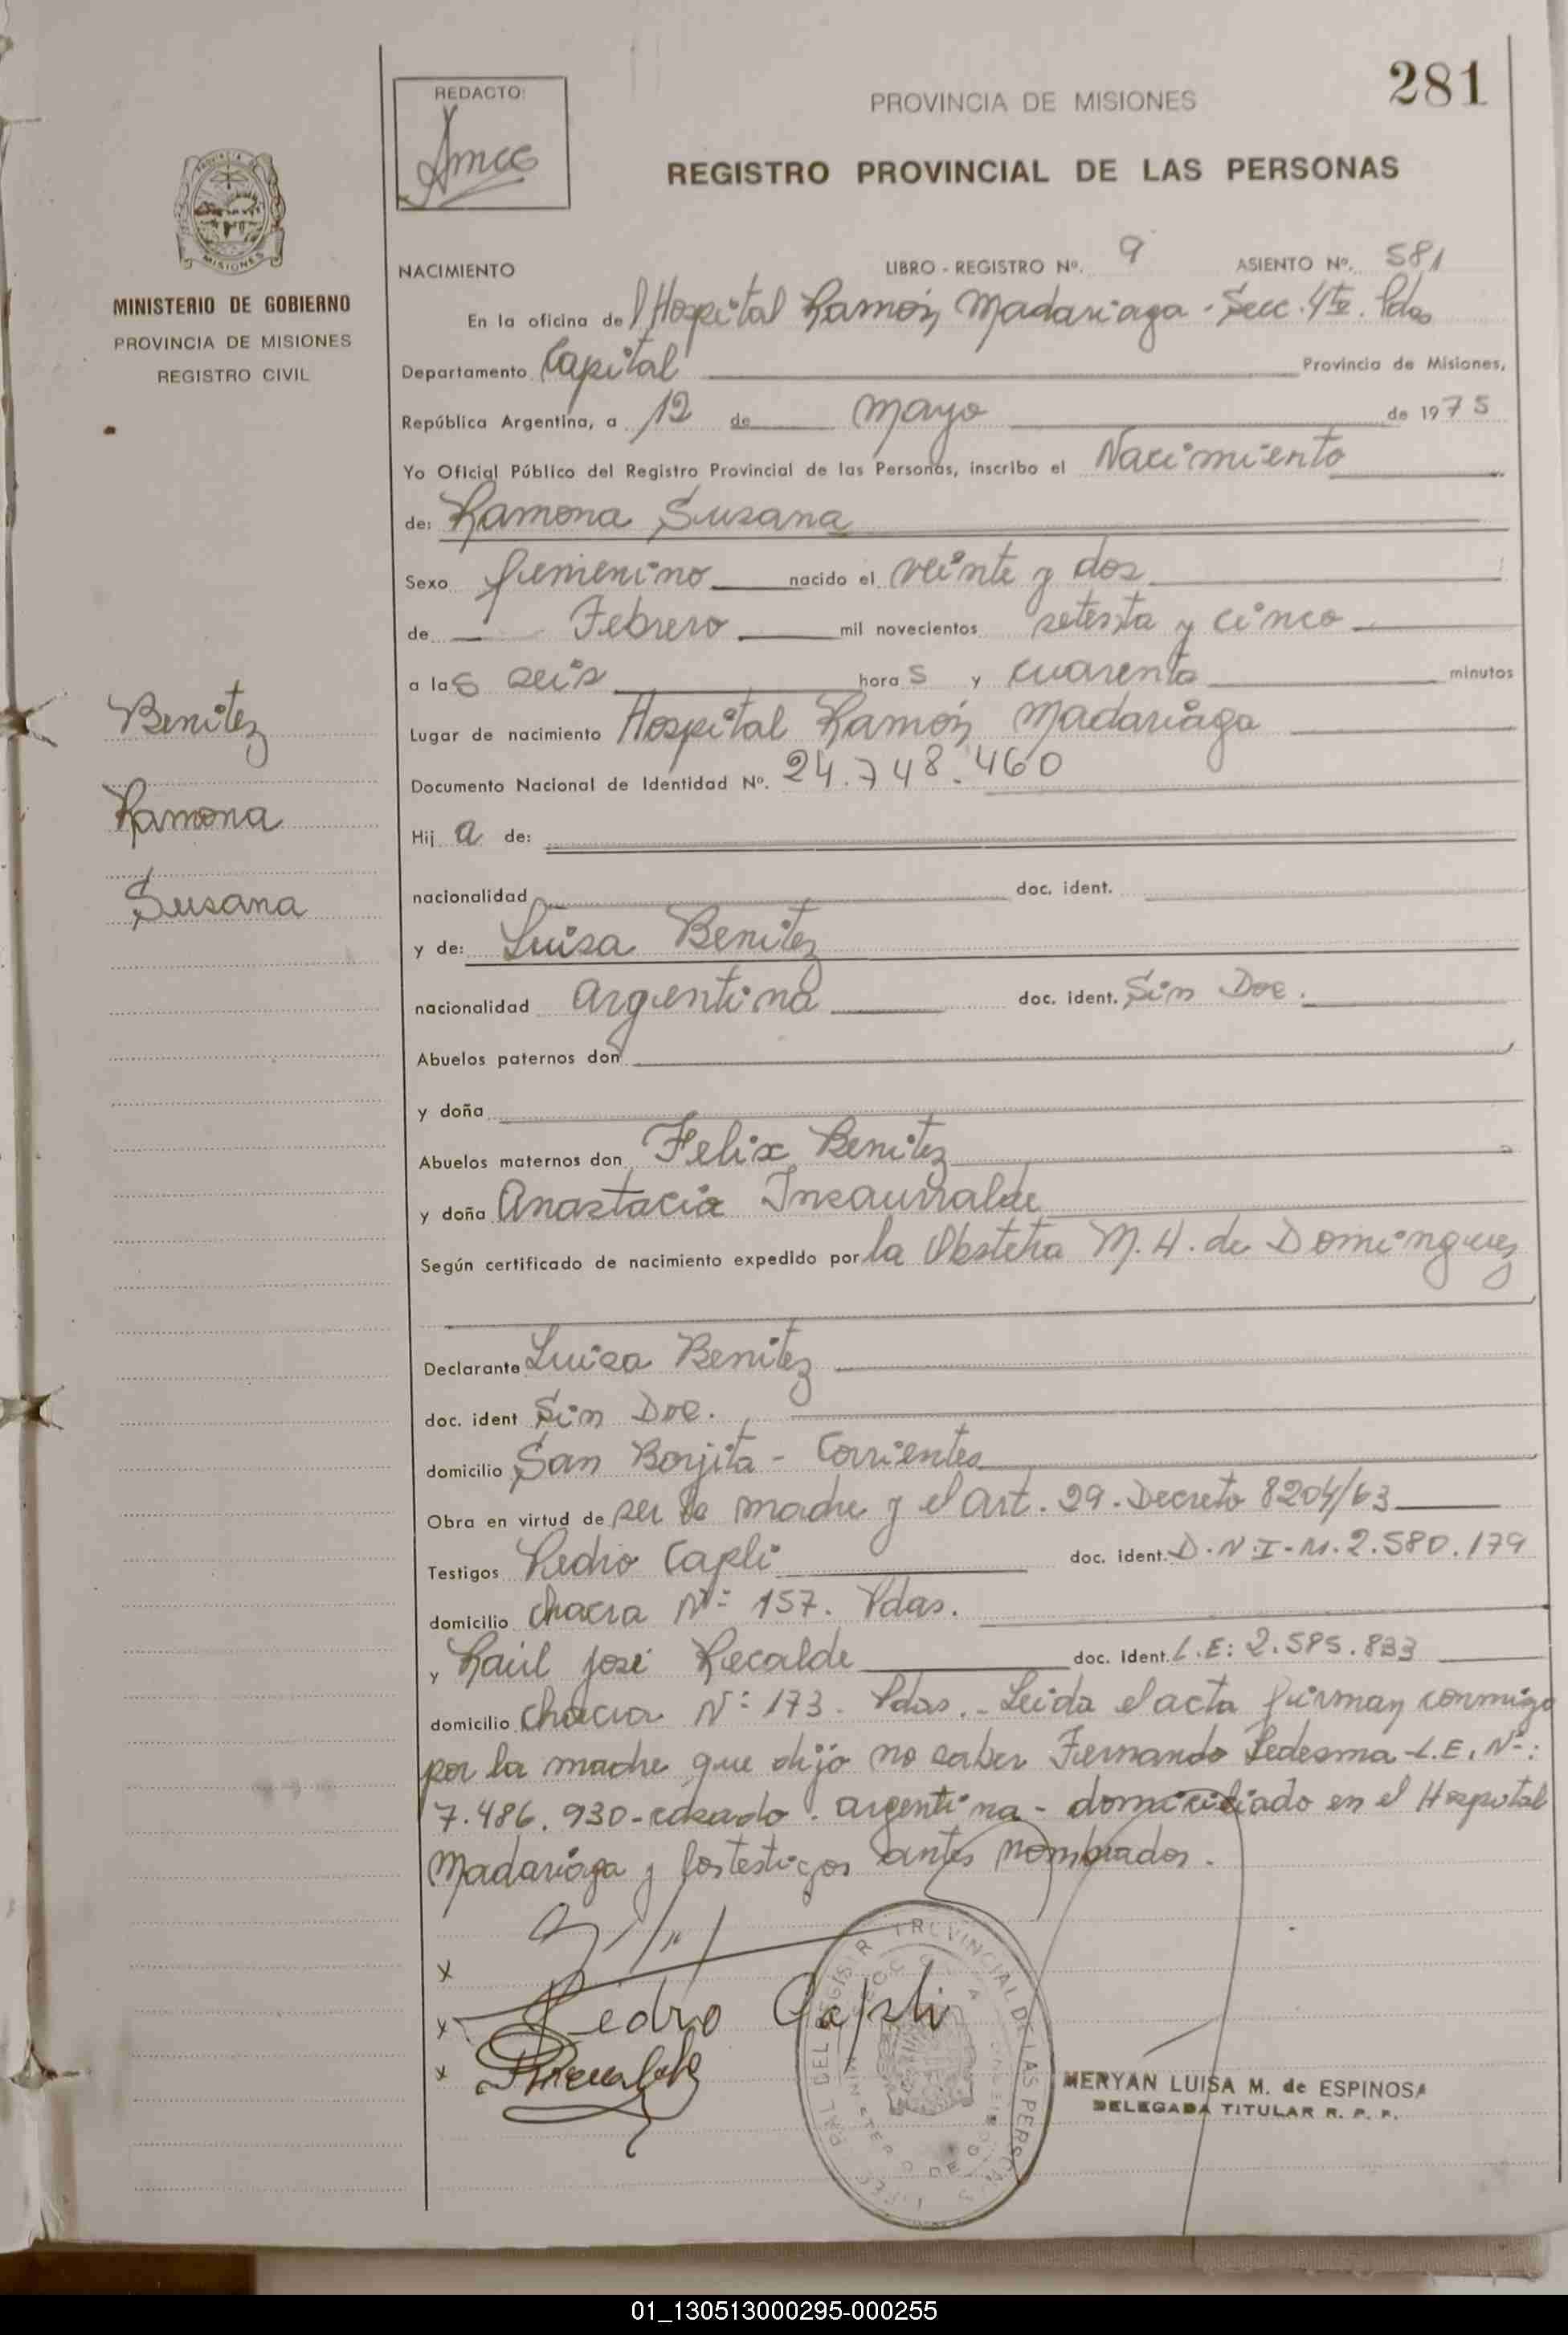 281
REDACTO:
PROVINCIA DE MISIONES
REGISTRO PROVINCIAL DE LAS PERSONAS
MISIONES
MINISTERIO DE GOBIERNO
PROVINCIA DE MISIONES
REGISTRO CIVIL
Benitez
Ramona
Susana
NACIMIENTO LIBRO - REGISTRO Nº. 9 ASIENTO Nº. 581
En la oficina del Hospital Ramón Madariaga - Secc. 4ta. Pdas
Departamento Capital Provincia de Misiones,
República Argentina, a 12 de mayo de 1975
Yo Oficial Público del Registro Provincial de las Personas, inscribo el Nacimiento
de: Ramona Susana
Sexo femenino nacido el veinte y dos
de Febrero mil novecientos setenta y cinco
a las seis horas y cuarenta minutos
Lugar de nacimiento Hospital Ramón Madariaga
Documento Nacional de Identidad Nº. 24.748.460
Hija de:
nacionalidad doc. ident.
y de: Luisa Benitez
nacionalidad argentina doc. ident. Sin Doc.
Abuelos paternos don
y doña
Abuelos maternos don Felix Benitez
y doña Anastacia Insaurralde
Según certificado de nacimiento expedido por la Obstetra M. H. de Dominguez
Declarante Luisa Benitez
doc. ident Sin Doc.
domicilio San Borjita - Corrientes
Obra en virtud de ser la madre y el art. 29. Decreto 8204/63
Testigos Pedro Capli doc. ident. D.N.I-M. 2.580.179
domicilio chacra Nº 157. Pdas.
y Raúl José Recalde doc. ident. L.E: 2.585.833
domicilio chacra Nº 173. Pdas. - Leida el acta firman conmigo
por la madre que dijo no saber Fernando Ledesma - L.E. Nº:
7.486.930 - casado. argentina - domiciliado en el Hospital
Madariaga y los testigos antes nombrados.
x
x Pedro Capli
x
MERYAN LUISA M. de ESPINOSA
DELEGADA TITULAR R. P. P.
01_130513000295-000255